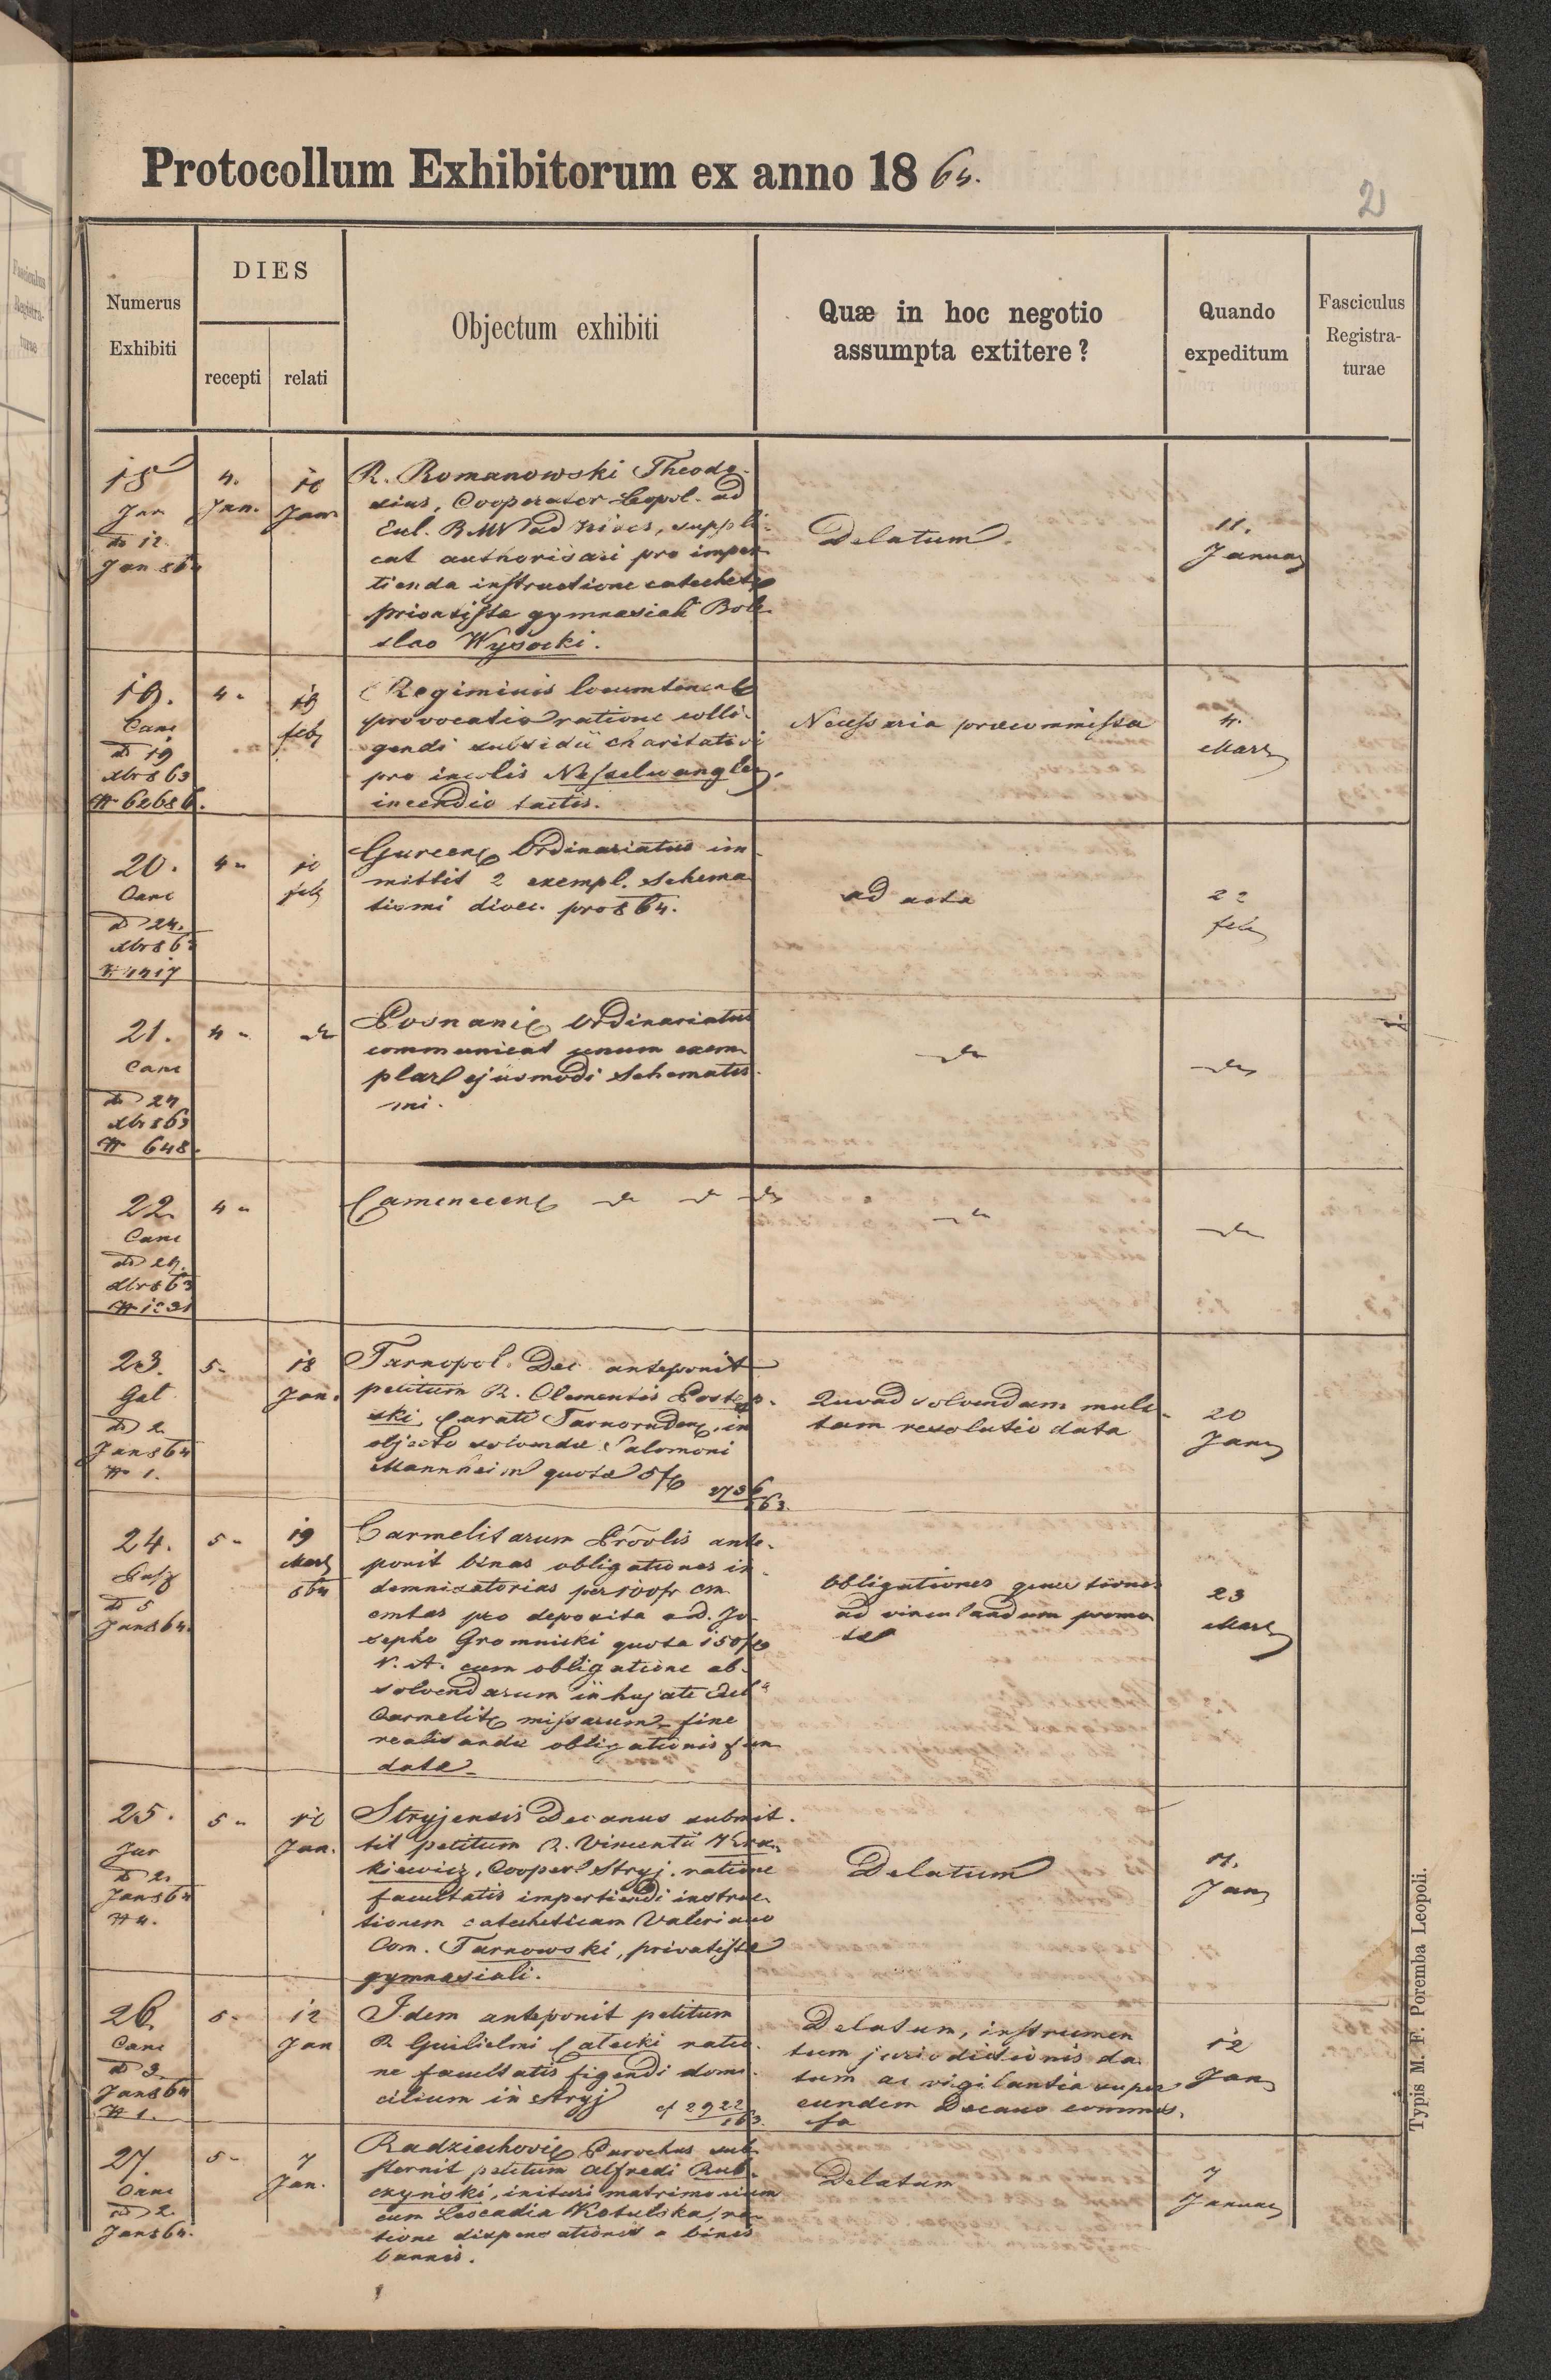 Protocollum Exhibitorum ex anno 1864.
2
Numerus Exhibiti
DIES
recepti
relati
Objectum exhibiti
Quæ in hoc negotio assumpta extitere?
Quando expeditum
Fasciculus Registra-turae
18
Jan
dto 12
Jan 864
4.
Jan.
10
Jan
R. Romanowski Theodo-
sius, Cooperator Leopol. ad
Eccl. B.M.V. ad Nives, suppli-
cat authorisari pro imper-
tienda instructione catechet
privatistae gymnasiali Bole-
slao Wysocki.
Delatum.
11.
Januar
19.
Canc
dto 19
Xbr 863
N 62686.
4 "
19
feb
Regiminis locumtenent
provocatio ratione colli-
gendi subsidii charitativi
pro incolis Nesselwangler
incendio tactis.
Necessaria praecommissa
4.
Mart
20.
Canc
dto 24.
Xbr 863
N 4417
4 "
10
feb
Gurcens Ordinariatus im-
mittit 2 exempl. Schema
tismi dioec. pro 864.
ad acta
22
feb
21.
Canc
dto 24
Xbr 863
N 648.
4 "
dto
Posnanie Ordinariatus
communicat unum exem-
plare ejusmodi Schematis-
mi.
dto
dto
22
Canc
dto 29.
Xbr 863
N 1231
4 "
Camenecens dto dto dto
dto
dto
23.
Gal
dto 2
Jan 864
N 1.
5 "
18
Jan.
Tarnopol. Dec anteponit
petitum R. Clementis Postęp-
ski, Curati Tarnoruden, in
objecto solvendae Salomoni
Mannheim quotae 5 f
2736
863.
Quoad solvendam mulc-
tam resolutio data
20
Jan
24.
dto 5
Jan 864.
5 "
19
Mart
864
Carmelitarum Prov̄lis ante-
ponit binas obligationes in-
demnisatorias per 100 fr cm
emtas pro deposita a d. Jo-
sepho Gromnicki quota 150 fl
V. A. cum obligatione ab-
solvendarum in hujate Eccl
Carmelit missarum fine
realisandae obligationis fun-
datae.
Obligationes quaestionis
ad vinculandum promo-
tae
23
Mart
25.
Jur
dto 2.
Jan 864
N 4.
5 "
10
Jan.
Stryjensis Decanus submit-
tit petitum R. Vincentii
kiewicz, Cooper. Stryj. ratione
facultatis impertiendi instruc-
tionem catecheticam Valeriano
Com. Tarnowski, privatistae
gymnasiali.
Delatum
11.
Jan
26.
Canc
dto 3.
Jan 864
N 1.
5 "
12
Jan
Idem anteponit petitum
R Guilielmi Załecki ratio-
ne facultatis figendi domi-
cilium in Stryj
cf 2922
863.
Delatum, instrumen
tum jurisdictionis da-
tum ac vigilantia super
eundem Decano commis-
sa
12
Jan
27.
Canc
dto 2.
Jan 864.
5 "
7
Jan.
Radziechovie Parochus sub-
sternit petitum Alfredi Rub-
czyński, inituri matrimonium
cum Leocadia Kotulska, ra-
tione dispensationis a binis
bannis.
Delatum
7
Januar
Typis M. F. Poremba Leopoli.